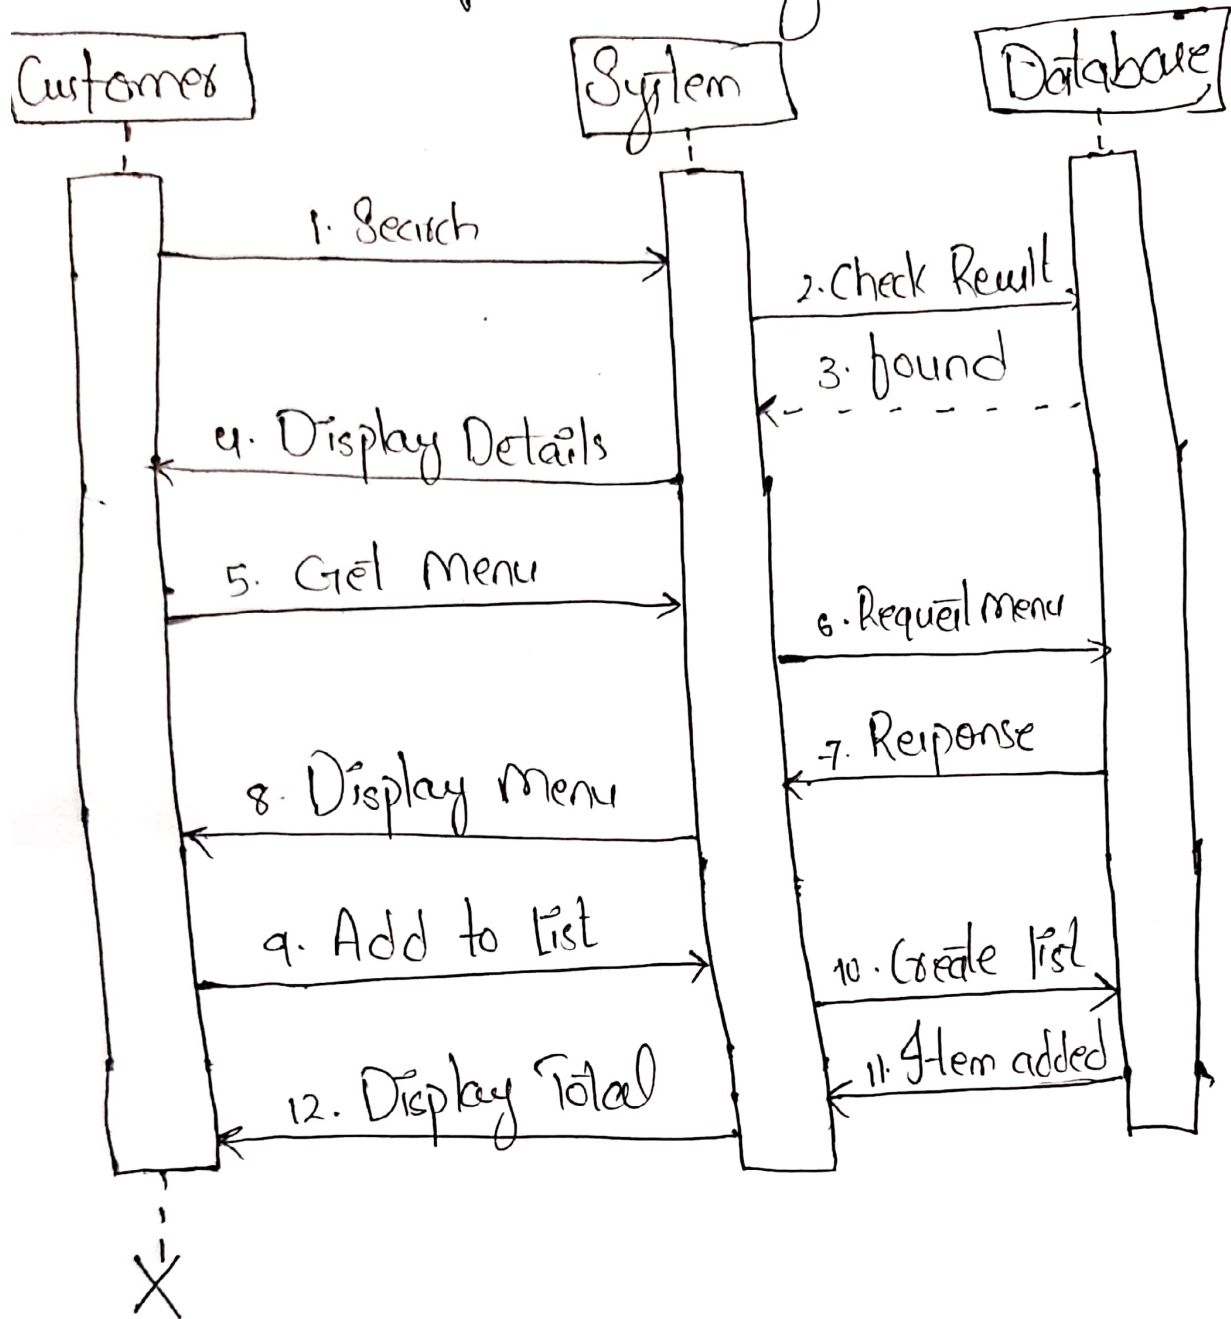 Customer
System
Database
1. Search
2. Check Result
3. found
4. Display Details
5. Get Menu
6. Request Menu
7. Response
8. Display Menu
9. Add to List
10. Create list
11. Item added
12. Display Total